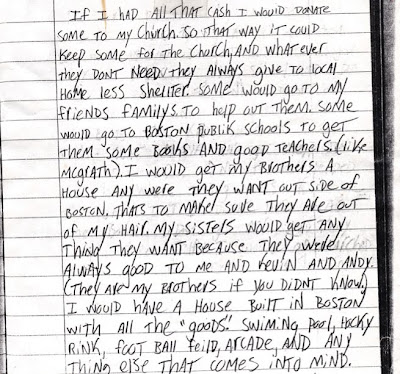 If I had all that cash I would donate
some to my church. So that way it could
keep some for the church, and what ever
they dont need they always give to local
home less shelter. Some would go to my
friends familys. To help out them. Some
would go to Boston publik schools to get
them some books and good teachers. (like
mcgrath). I would get my brothers a
house any were they want out side of
Boston. Thats to make sure they are out
of my hair. My sisters would get any
thing they want because they were
always good to me and kevin and andy.
(They are my brothers if you didnt know.)
I would have a house built in Boston
with all the "goods". Swiming pool, hocky
rink, foot ball feild, arcade, and any
thing else that comes into mind.